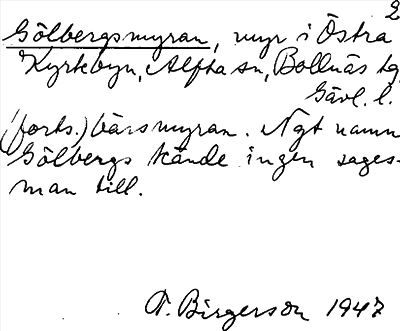 2
Gölbergsmyran, myr i Östra
Kyrkbyn, Alfta sn, Bollnäs tg
Gävl. l.
(forts.) bärsmyran. Ngt namn
Gölbergs kände ingen sages-
man till.
T. Birgerson 1947